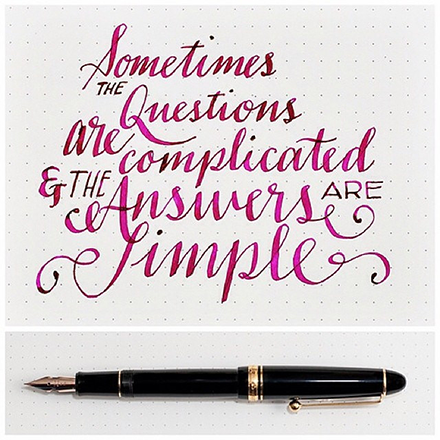 Sometimes
THE Questions
are complicated
& THE Answers ARE
Simple